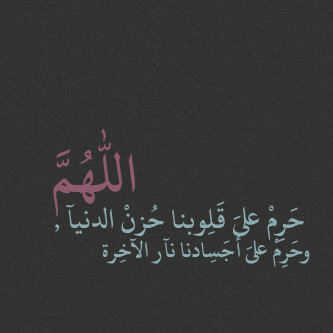 اللّٰهُمَّ
حَرِمْ علىَ قَلِوبنا حُزنْ الدنيآ ,
وحَرِمْ علىَ أجَسِادنا نآر الآخِرة